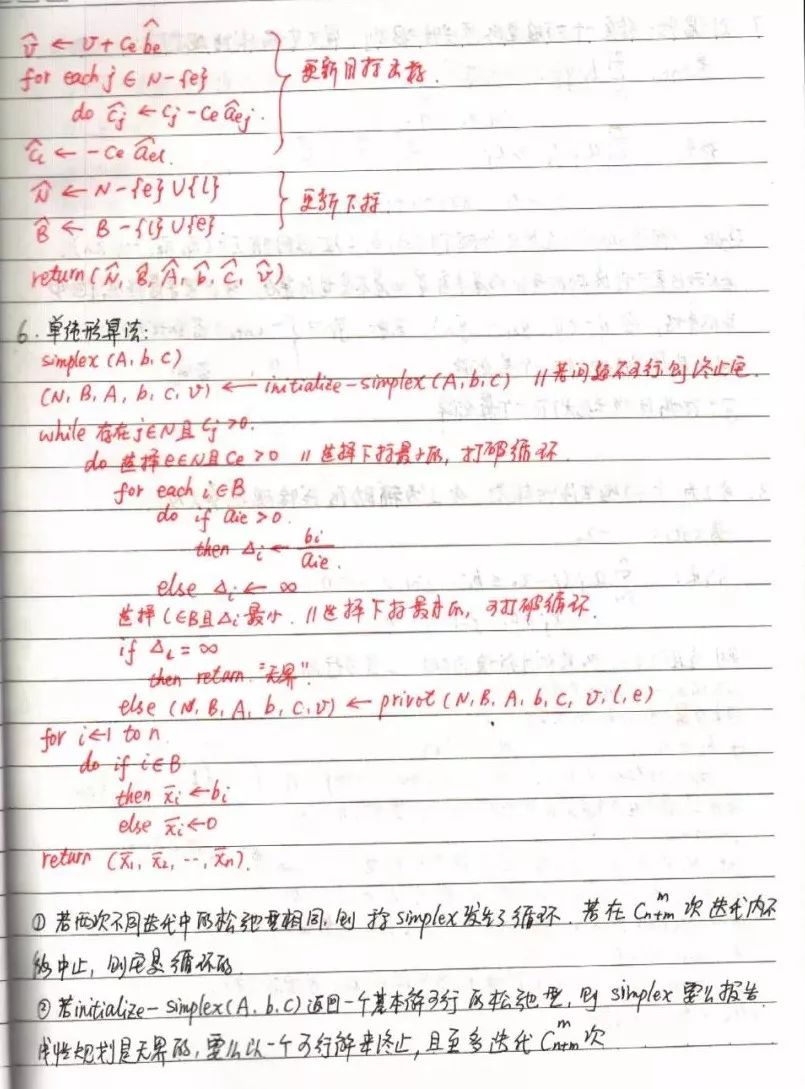 v̂ ← v + ce b̂e
for each j ∈ N-{e}
do ĉj ← cj - ce âej.
更新目标函数.
ĉl ← -ce âel.
N̂ ← N-{e}∪{l}
B̂ ← B-{l}∪{e}.
更新下标
return(N̂, B̂, Â, b̂, ĉ, v̂)
6. 单纯形算法:
simplex (A, b, c)
(N, B, A, b, c, v) ← initialize-simplex(A, b, c) //若问题不可行则终止它.
while 存在 j∈N 且 cj >0.
do 选择 e∈N 且 ce >0 //选择下标最小的, 打破循环
for each i∈B
do if aie >0.
then Δi ← bi/aie.
else Δi ← ∞
选择 l∈B 且 Δi 最小. //选择下标最小的, 可打破循环.
if Δl = ∞
then return "无界".
else (N, B, A, b, c, v) ← privot (N, B, A, b, c, v, l, e)
for i←1 to n.
do if i∈B
then x̄i ← bi
else x̄i ← 0
return (x̄1, x̄2, ..., x̄n).
① 若两次不同迭代中的松弛型相同, 则称 simplex 发生了循环. 若在 C_{n+m}^m 次迭代内不
能中止, 则它是循环的.
② 若 initialize-simplex(A, b, c) 返回一个基本解可行的松弛型, 则 simplex 要么报告
线性规划是无界的, 要么以一个可行解来终止, 且至多迭代 C_{n+m}^m 次